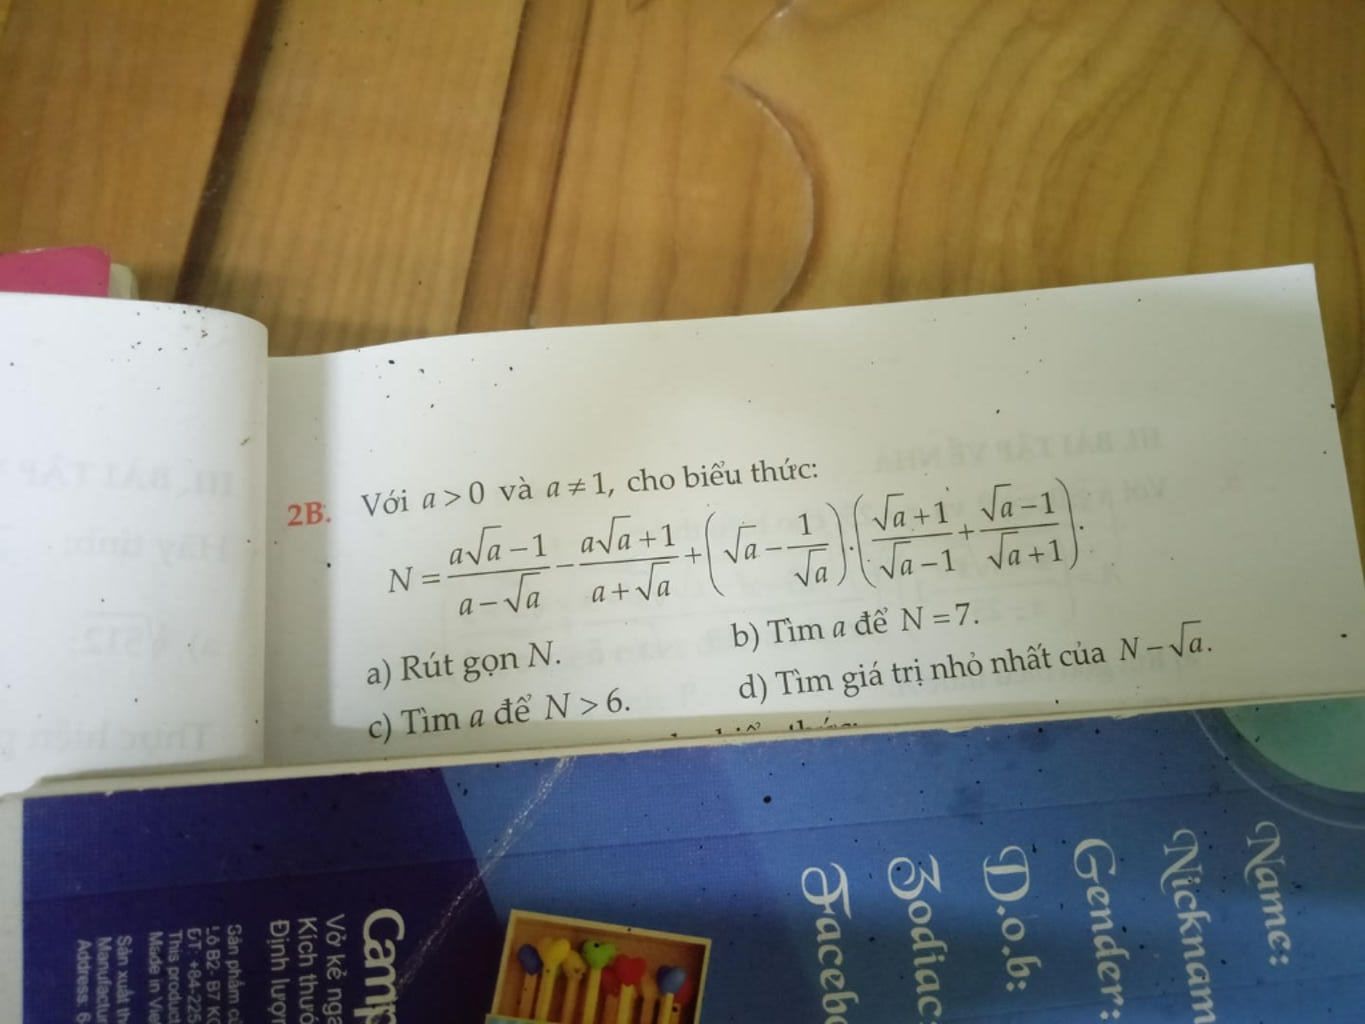 2B. Với a > 0 và a ≠ 1, cho biểu thức:
N = \frac{a\sqrt{a}-1}{a-\sqrt{a}} - \frac{a\sqrt{a}+1}{a+\sqrt{a}} + \left(\sqrt{a}-\frac{1}{\sqrt{a}}\right).\left(\frac{\sqrt{a}+1}{\sqrt{a}-1}+\frac{\sqrt{a}-1}{\sqrt{a}+1}\right).
a) Rút gọn N. b) Tìm a để N = 7.
c) Tìm a để N > 6. d) Tìm giá trị nhỏ nhất của N − √a.
Name:
Nicknam
Gender:
D.o.b:
Zodiac:
Facebo
Camp
Vở kẻ nga
Kích thướ
Định lượn
Sản phẩm củ
Lô B2- B7 KC
ĐT: +84-225
This product
Made in Vie
Sản xuất th
Manufactur
Address: 6